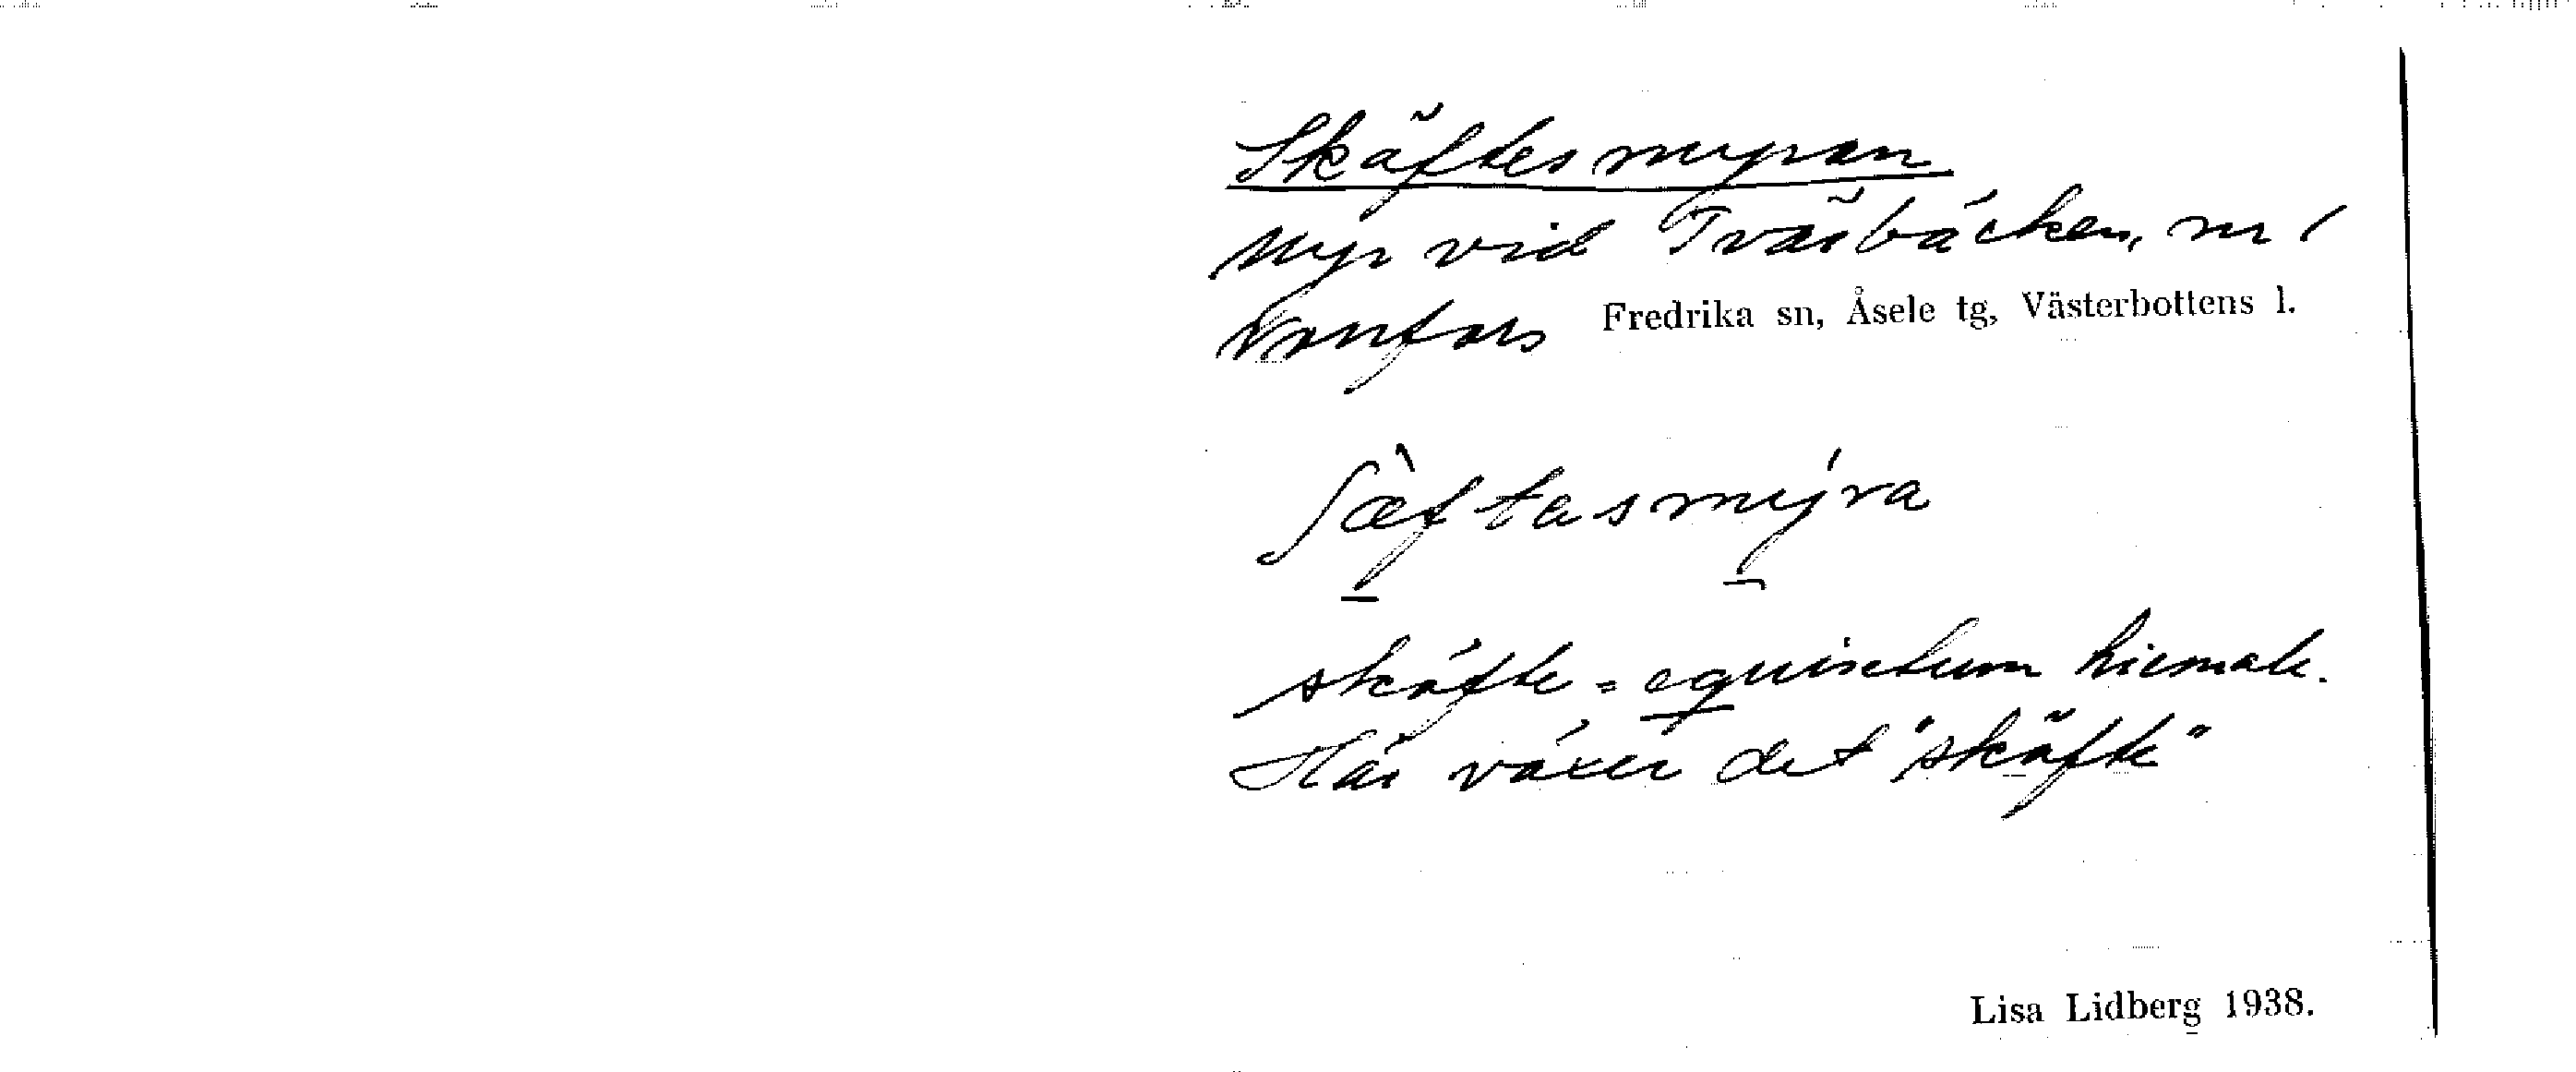 Skäftesmyran
Myr vid Tväråbäcken, nr 1
Vonfors Fredrika sn, Åsele tg, Västerbottens l.
ʃæ̀ftasmýra
skäfte = equisetum hiemale.
Här växer det "skäfte"
Lisa Lidberg 1938.